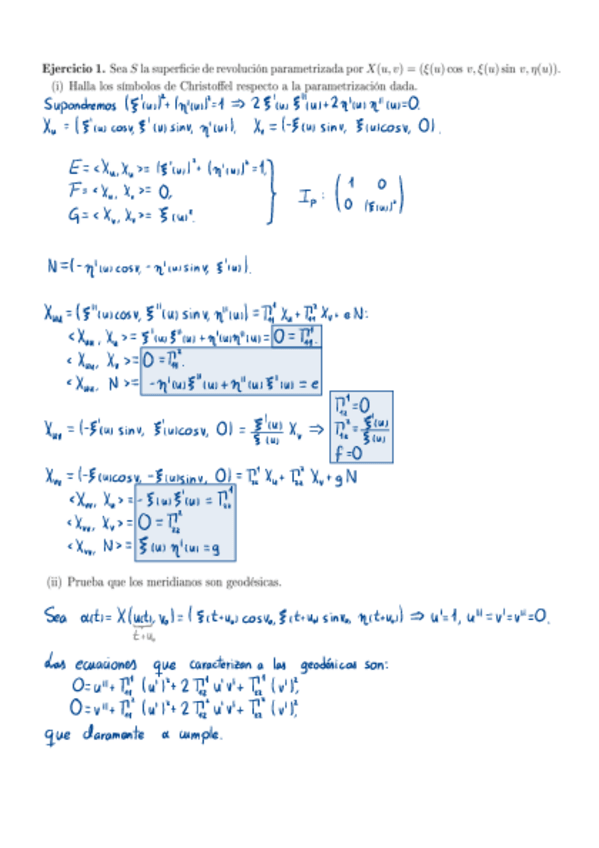 Ejercicio 1. Sea S la superficie de revolución parametrizada por X(u, v) = (ξ(u) cos v, ξ(u) sin v, η(u)).
(i) Halla los símbolos de Christoffel respecto a la parametrización dada.
Supondremos (ξ'(u))² + (η'(u))² = 1 ⇒ 2 ξ'(u) ξ''(u) + 2 η'(u) η''(u) = 0.
Xᵤ = (ξ'(u) cosv, ξ'(u) sinv, η'(u)), Xᵥ = (-ξ(u) sinv, ξ(u)cosv, 0).
E = <Xᵤ, Xᵤ> = (ξ'(u))² + (η'(u))² = 1,
F = <Xᵤ, Xᵥ> = 0,
G = <Xᵥ, Xᵥ> = ξ(u)².
Iₚ: (1 0
0 (ξ(u))²)
N = (-η'(u)cosv, -η'(u)sinv, ξ'(u)).
Xᵤᵤ = (ξ''(u)cosv, ξ''(u) sinv, η''(u)) = Γ₁₁¹ Xᵤ + Γ₁₁² Xᵥ + eN:
<Xᵤᵤ, Xᵤ> = ξ'(u) ξ''(u) + η'(u)η''(u) = 0 = Γ₁₁¹.
<Xᵤᵤ, Xᵥ> = 0 = Γ₁₁².
<Xᵤᵤ, N> = -η'(u)ξ''(u) + η''(u) ξ'(u) = e
Xᵤᵥ = (-ξ'(u) sinv, ξ'(u)cosv, 0) = ξ'(u)/ξ(u) Xᵥ ⇒
Γ₁₂¹ = 0
Γ₁₂² = ξ'(u)/ξ(u)
f = 0
Xᵥᵥ = (-ξ(u)cosv, -ξ(u)sinv, 0) = Γ₂₂¹ Xᵤ + Γ₂₂² Xᵥ + gN
<Xᵥᵥ, Xᵤ> = -ξ(u)ξ'(u) = Γ₂₂¹
<Xᵥᵥ, Xᵥ> = 0 = Γ₂₂²
<Xᵥᵥ, N> = ξ(u) η'(u) = g
(ii) Prueba que los meridianos son geodésicas.
Sea α(t) = X(u(t), v₀) = (ξ(t+u₀) cosv₀, ξ(t+u₀) sinv₀, η(t+u₀)) ⇒ u' = 1, u'' = v' = v'' = 0.
t+u₀
Las ecuaciones que caracterizan a las geodésicas son:
0 = u'' + Γ₁₁¹ (u')² + 2 Γ₁₂¹ u'v' + Γ₂₂¹ (v')²,
0 = v'' + Γ₁₁² (u')² + 2 Γ₁₂² u'v' + Γ₂₂² (v')²,
que claramente α cumple.